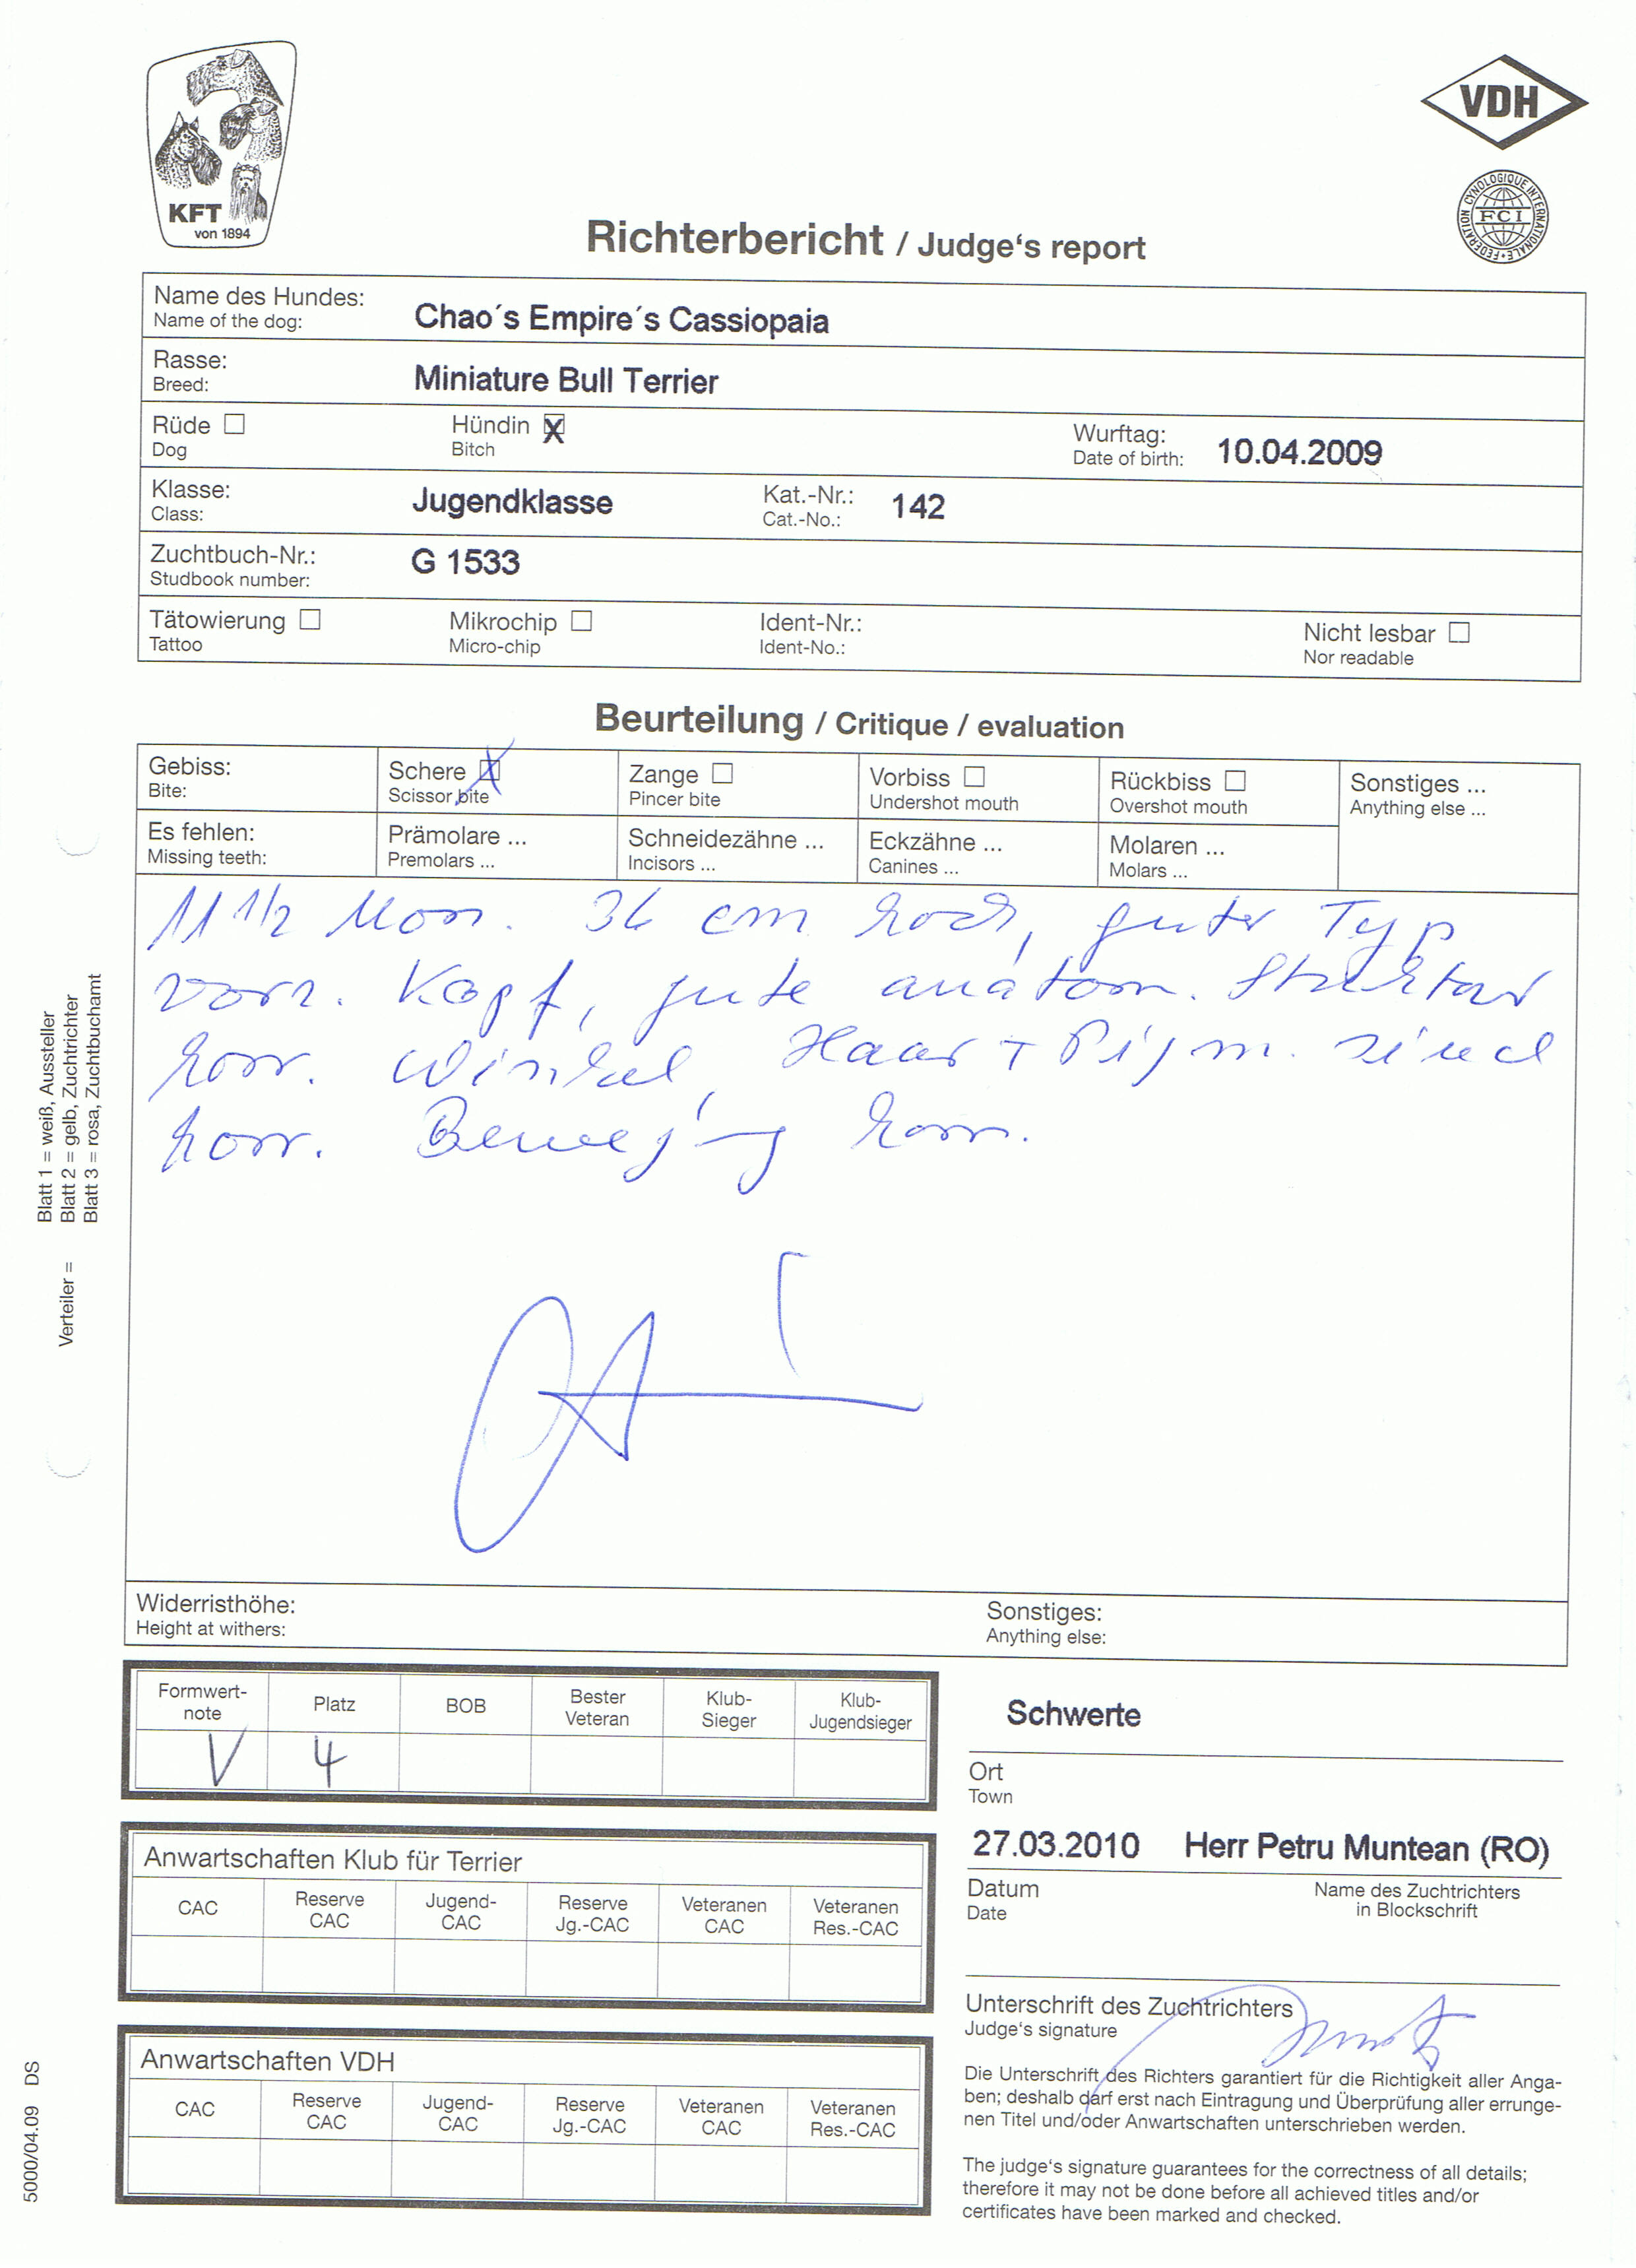 KFT
von 1894
VDH
FEDERATION CYNOLOGIQUE INTERNATIONALE
FCI
Richterbericht / Judge's report
Name des Hundes:
Name of the dog:
Chao´s Empire´s Cassiopaia
Rasse:
Breed:
Miniature Bull Terrier
Rüde ☐
Dog
Hündin ☒
Bitch
Wurftag:
Date of birth:
10.04.2009
Klasse:
Class:
Jugendklasse
Kat.-Nr.:
Cat.-No.:
142
Zuchtbuch-Nr.:
Studbook number:
G 1533
Tätowierung ☐
Tattoo
Mikrochip ☐
Micro-chip
Ident-Nr.:
Ident-No.:
Nicht lesbar ☐
Nor readable
Beurteilung / Critique / evaluation
Gebiss:
Bite:
Schere ☒
Scissor bite
Zange ☐
Pincer bite
Vorbiss ☐
Undershot mouth
Rückbiss ☐
Overshot mouth
Sonstiges ...
Anything else ...
Es fehlen:
Missing teeth:
Prämolare ...
Premolars ...
Schneidezähne ...
Incisors ...
Eckzähne ...
Canines ...
Molaren ...
Molars ...
11 1/2 Mon. 36 cm hoch, guter Typ
vorz. Kopf, gute anatom. Struktur
korr. Winkel, Haar + Pigm. sind
korr. Bewegung korr.
Widerristhöhe:
Height at withers:
Sonstiges:
Anything else:
Formwert-
note
Platz
BOB
Bester
Veteran
Klub-
Sieger
Klub-
Jugendsieger
V 4
Schwerte
Ort
Town
27.03.2010 Herr Petru Muntean (RO)
Datum
Date
Name des Zuchtrichters
in Blockschrift
Anwartschaften Klub für Terrier
CAC
Reserve
CAC
Jugend-
CAC
Reserve
Jg.-CAC
Veteranen
CAC
Veteranen
Res.-CAC
Unterschrift des Zuchtrichters
Judge's signature
Die Unterschrift des Richters garantiert für die Richtigkeit aller Anga-
ben; deshalb darf erst nach Eintragung und Überprüfung aller errunge-
nen Titel und/oder Anwartschaften unterschrieben werden.
The judge's signature guarantees for the correctness of all details;
therefore it may not be done before all achieved titles and/or
certificates have been marked and checked.
Anwartschaften VDH
CAC
Reserve
CAC
Jugend-
CAC
Reserve
Jg.-CAC
Veteranen
CAC
Veteranen
Res.-CAC
Verteiler = Blatt 1 = weiß, Aussteller
Blatt 2 = gelb, Zuchtrichter
Blatt 3 = rosa, Zuchtbuchamt
5000/04.09 DS